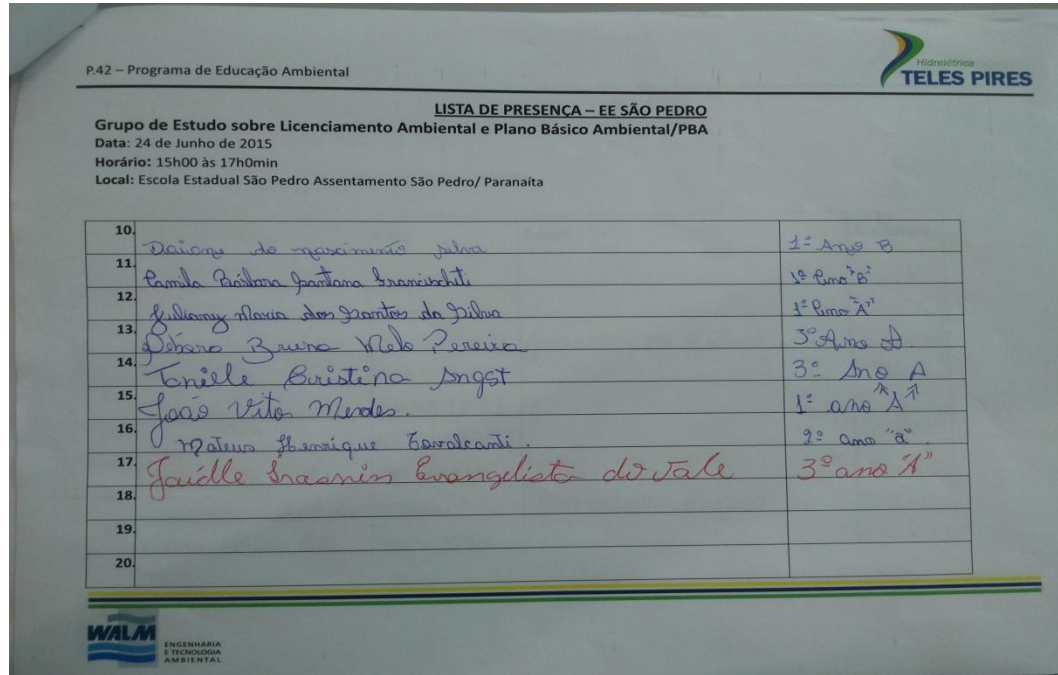 P.42 – Programa de Educação Ambiental
Hidrelétrica
TELES PIRES
LISTA DE PRESENÇA – EE SÃO PEDRO
Grupo de Estudo sobre Licenciamento Ambiental e Plano Básico Ambiental/PBA
Data: 24 de Junho de 2015
Horário: 15h00 às 17h0min
Local: Escola Estadual São Pedro Assentamento São Pedro/ Paranaíta
10. Daiane do nascimento silva 1º Ano B
11. Camila Bárbara Santana 1º Ano "B"
12. Juliany Maria dos Santos da Silva 1º Ano "A"
13. Débora Bruna Melo Pereira 3º Ano A.
14. Tanielle Cristina Angst 3º Ano A
15. João Vitor Mendes. 1º ano "A"
16. Mateus Henrique Cavalcanti. 2º ano "a".
17. Evangelista do Vale 3º ano "A"
18.
19.
20.
WALM
ENGENHARIA
E TECNOLOGIA
AMBIENTAL